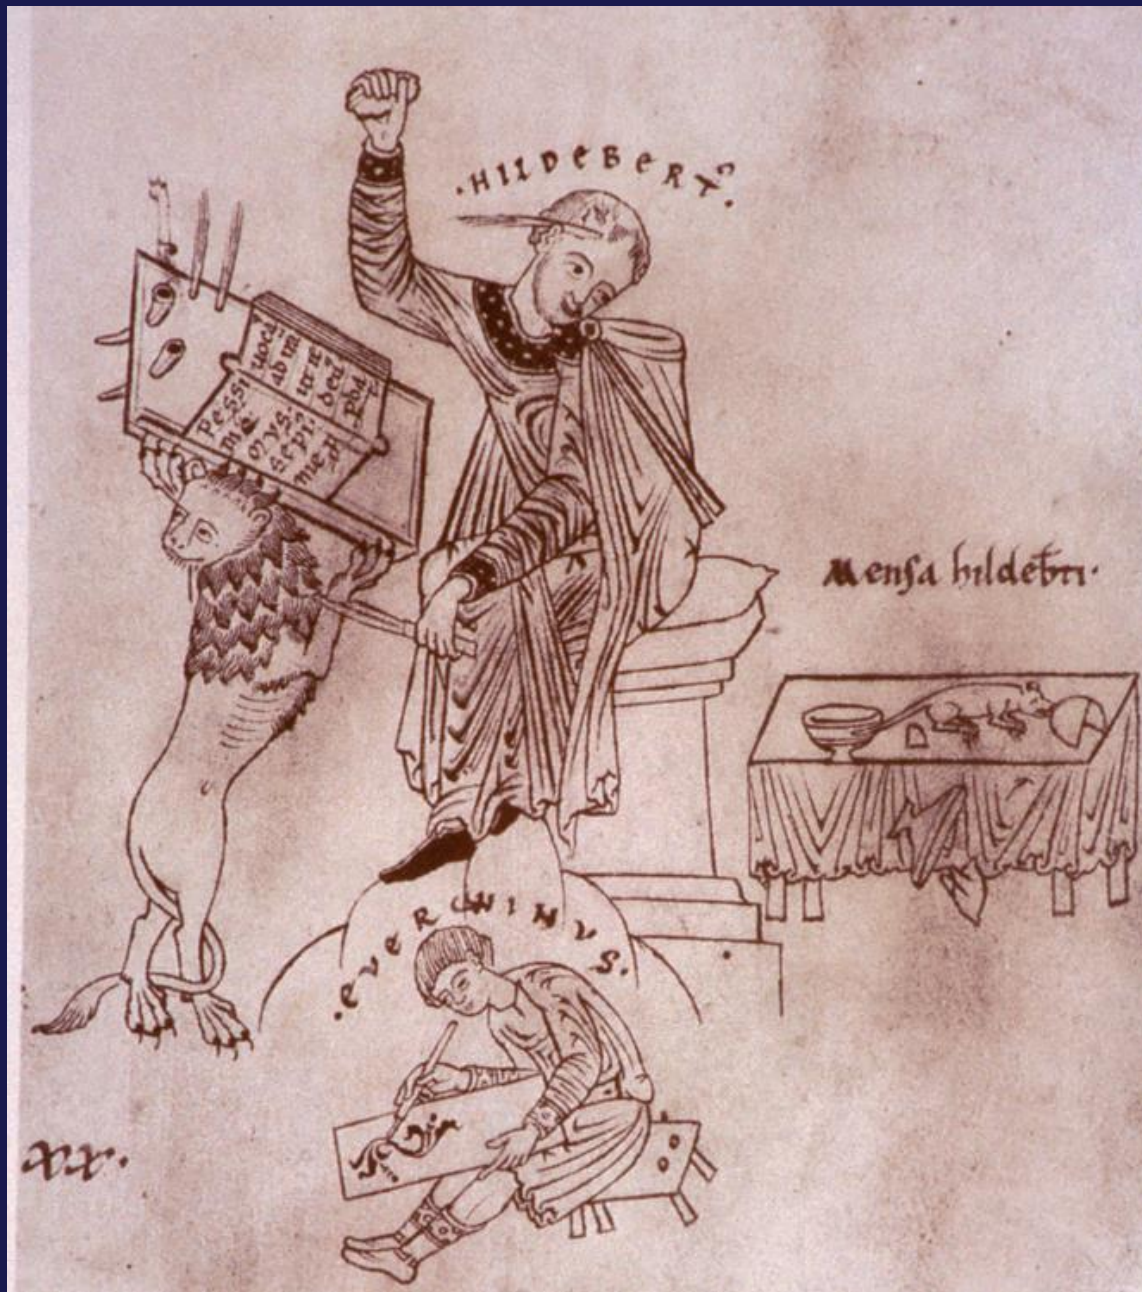 ·HILDEBERTꝰ·
Pessi
me
mus.
sepiꝰ
me ꝓ
uocas
ad irā
ut te
deꝰ
ꝑdat
Mensa hildebti·
·EVERWINVS·